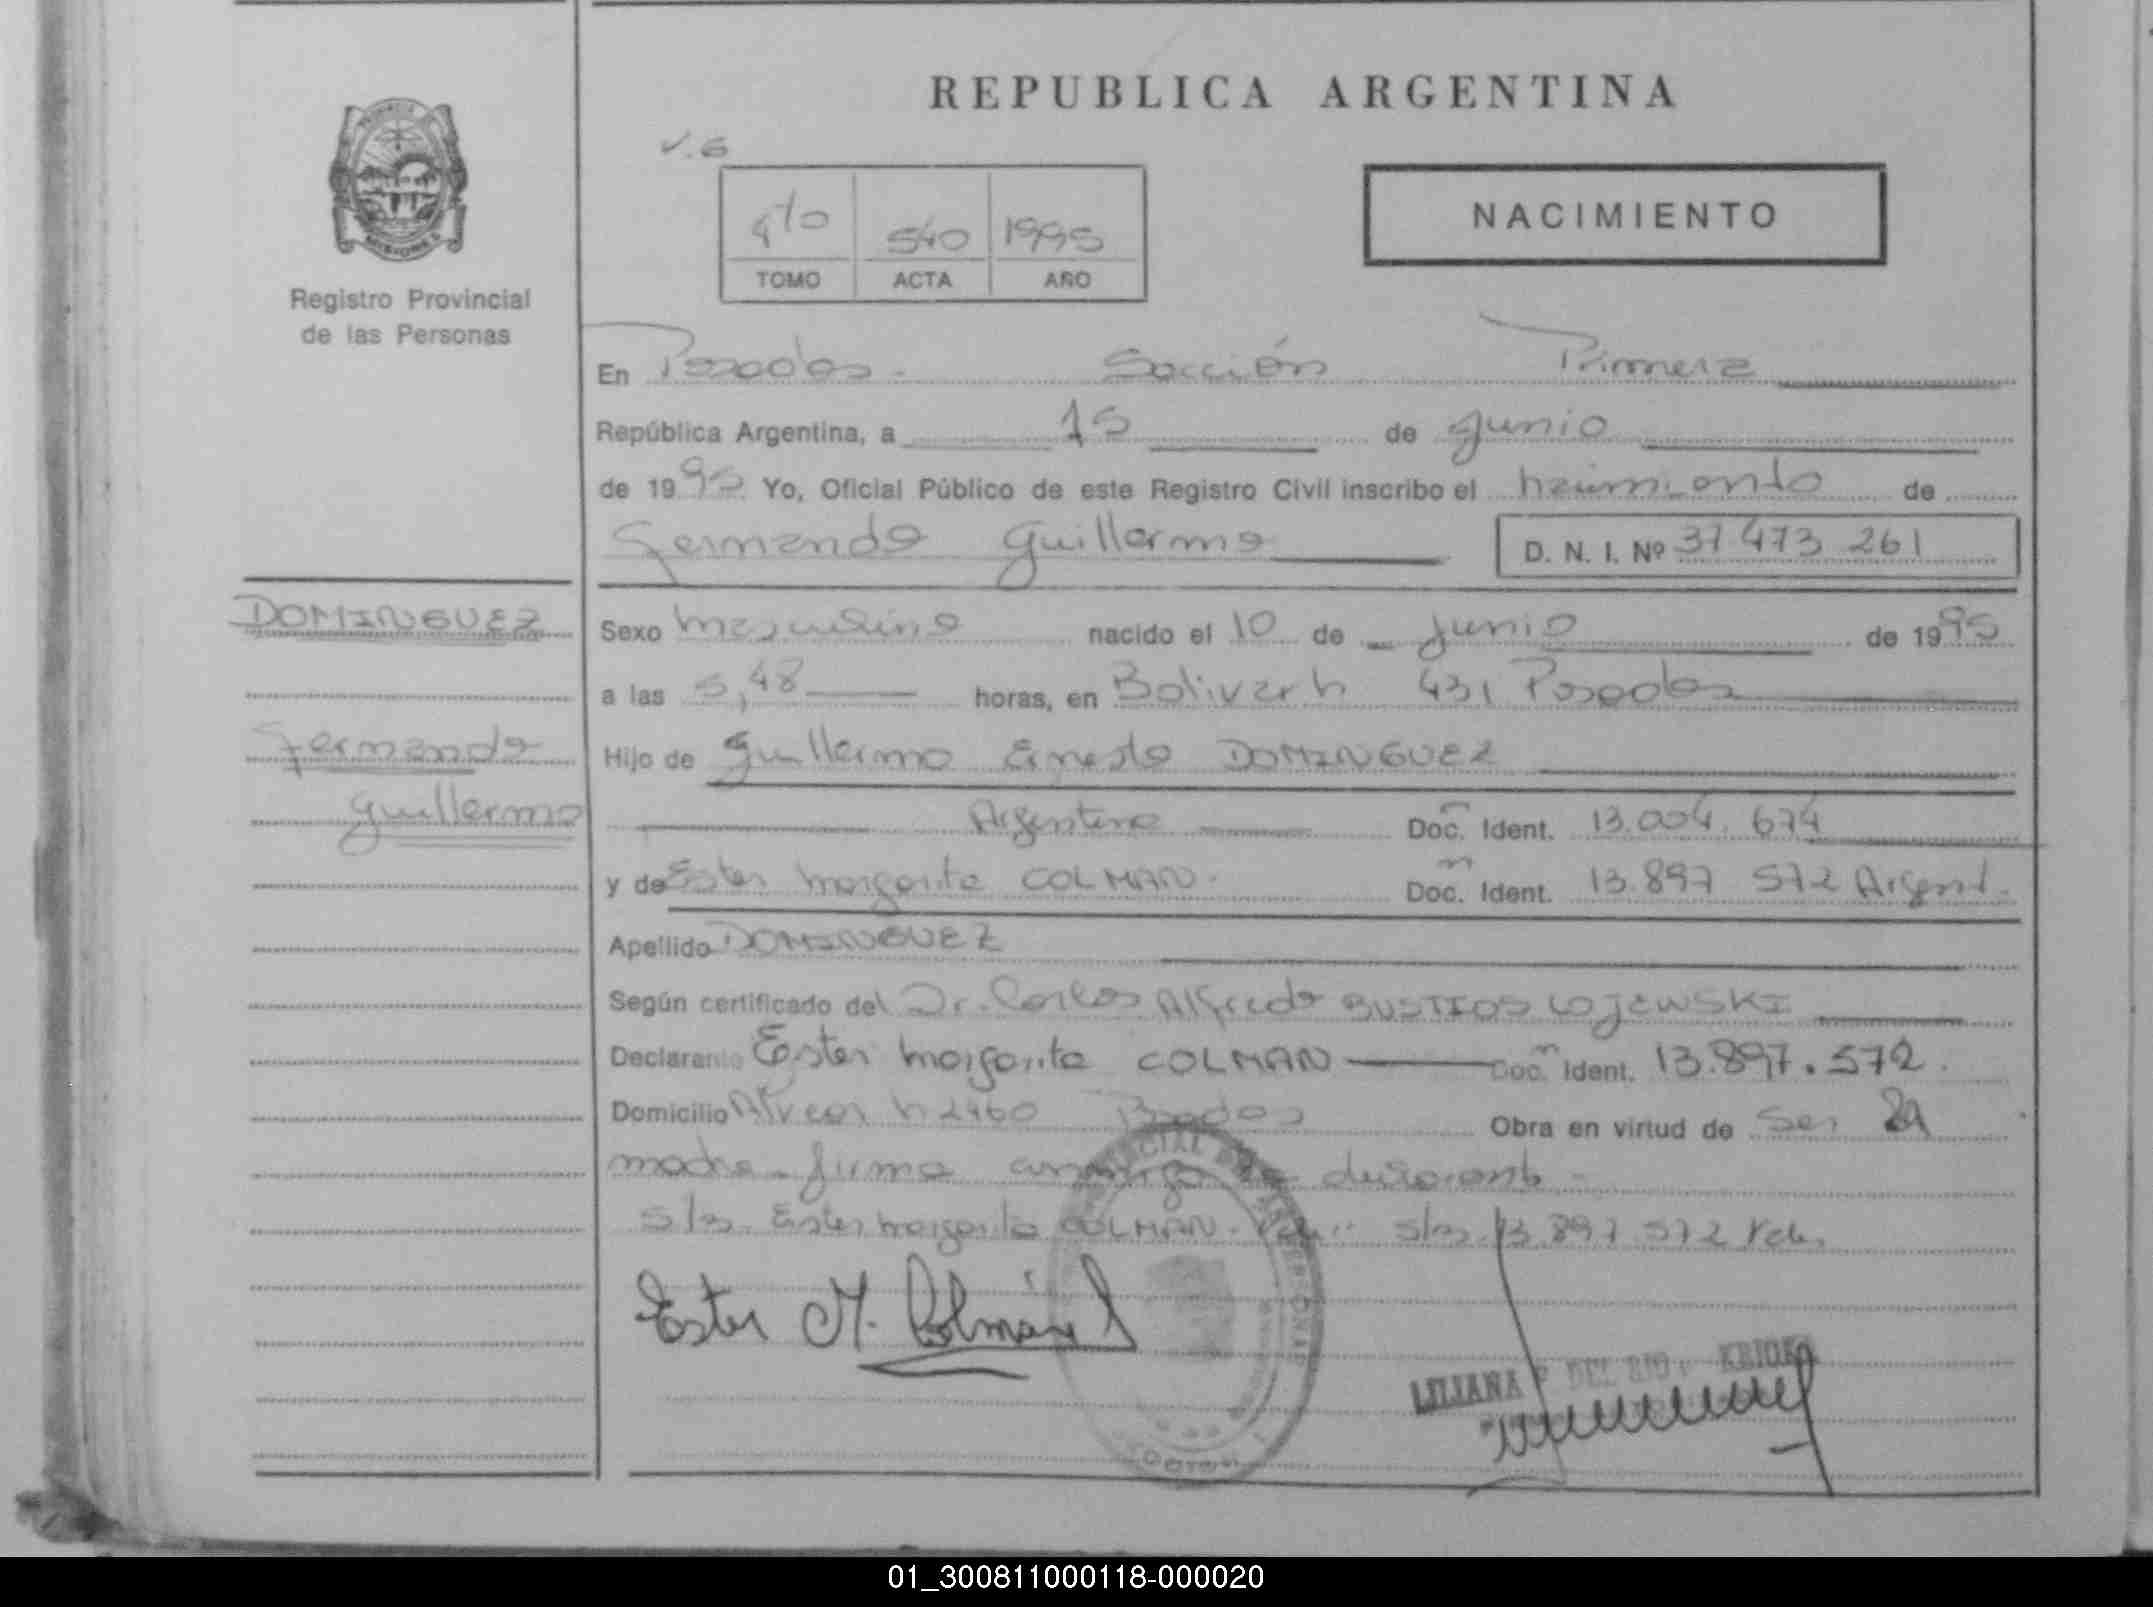 REPUBLICA ARGENTINA
V.6
4to 540 1995
TOMO ACTA AÑO
NACIMIENTO
Registro Provincial
de las Personas
En Posadas - Sección Primera
República Argentina, a 15 de Junio
de 1995 Yo, Oficial Público de este Registro Civil inscribo el nacimiento de
Germando Guillermo D. N. I. Nº 37 473 261
DOMINGUEZ
Germando
Guillermo
Sexo masculino nacido el 10 de Junio de 1995
a las 5,48 horas, en Bolivar n 431 Posadas
Hijo de Guillermo Ernesto DOMINGUEZ
Argentino Doc. Ident. 13.004.674
y de Ester Margarita COLMAN. Doc. Ident. 13.897 572 Argent.
Apellido DOMINGUEZ
Según certificado del Dr. Carlos Alfredo BUSTIOS LOJEWSKI
Declarante Ester Margarita COLMAN Doc. Ident. 13.897.572.
Domicilio Alvear n 2460 Posadas Obra en virtud de ser la
madre - firma conmigo declarante -
S/r. Ester Margarita COLMAN. Vale.. S/r. 13.897 572 Vale.
Ester M. Colmán
LILIANA DEL RIO
01_300811000118-000020